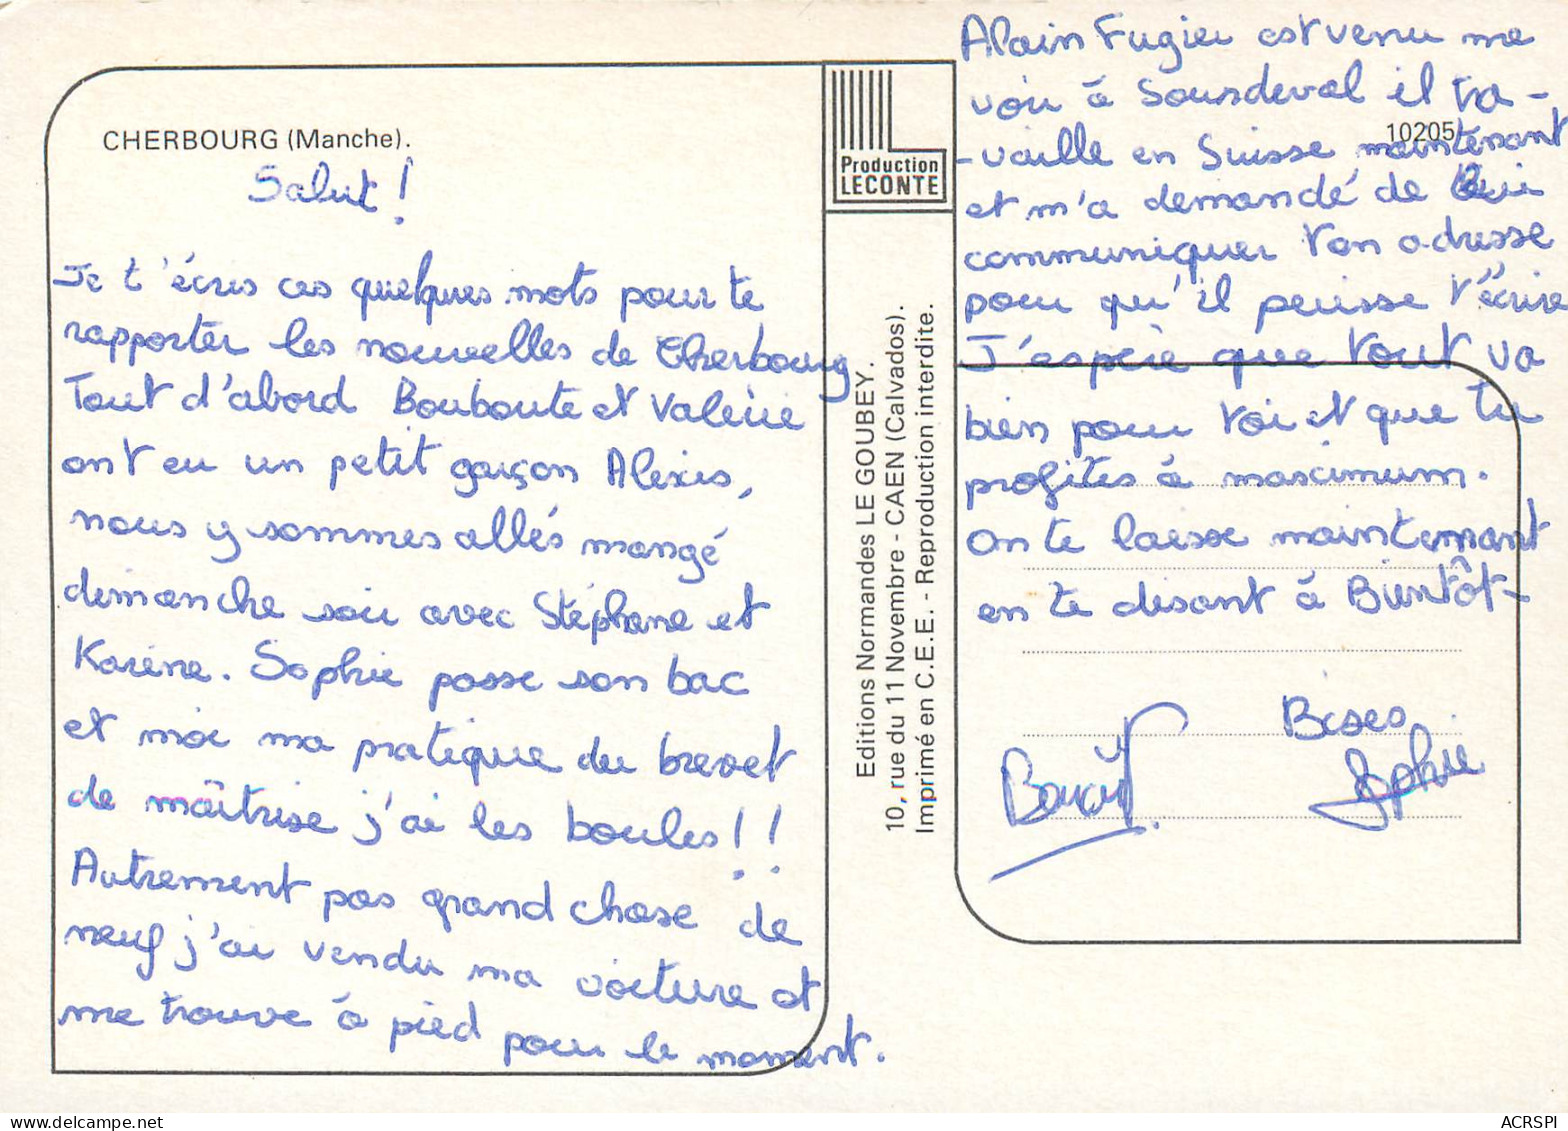 CHERBOURG (Manche).
Salut !
Je t'écris ces quelques mots pour te
rapporter les nouvelles de Cherbourg
Tout d'abord Bouboute et Valérie
ont eu un petit garçon Alexis,
nous y sommes allés mangé
dimanche soir avec Stéphane et
Karine. Sophie passe son bac
et moi ma pratique du brevet
de maîtrise j'ai les boules ! !
Autrement pas grand chose de
neuf j'ai vendu ma voiture et
me trouve à pied pour le moment.
Production
LECONTE
Editions Normandes LE GOUBEY.
10, rue du 11 Novembre - CAEN (Calvados).
Imprimé en C.E.E. - Reproduction interdite.
10205
Alain Fugier est venu me
voir à Sourdeval il tra-
-vaille en Suisse maintenant
et m'a demandé de lui
communiquer ton adresse
pour qu'il puisse t'écrire
J'espère que tout va
bien pour toi et que tu
profites à maximum.
On te laisse maintenant
en te disant à Bientôt-
Bises
Sophie
ACRSPI